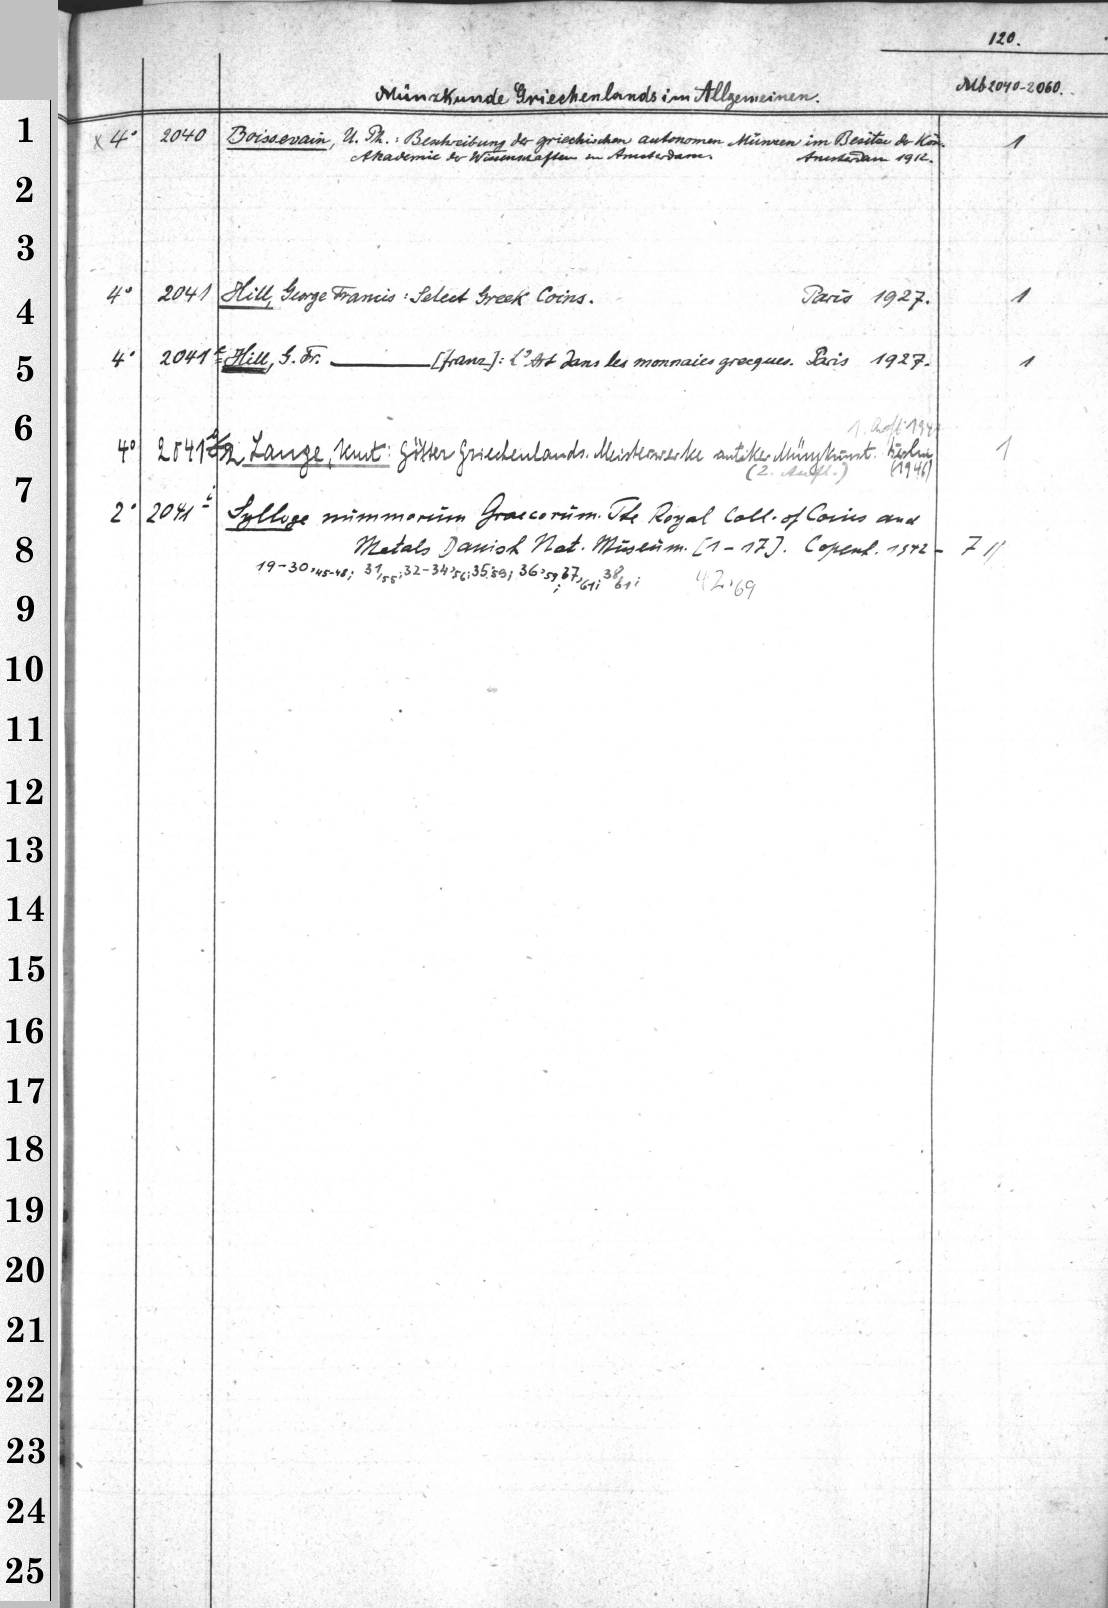 120.
Münzkunde Griechenlands im Allgemeinen. Mb 2040-2060.
1
x 4° 2040 Boissevain, U. Ph.: Beschreibung der griechischen autonomen Münzen im Besitze der Kön. 1
Akademie der Wissenschaften in Amsterdam. Amsterdam 1912.
2
3
4° 2041 Hill, George Francis: Select Greek Coins. Paris 1927. 1
4
4° 2041 Hill, G. Fr. [franz]: L'Art dans les monnaies grecques. Paris 1927. 1
5
6
1. Aufl. 194
4° 2041 Lange, Kurt: Götter Griechenlands. Meisterwerke antiker Münzkunst. Berlin 1
(2. Aufl.) (1946)
7
2° 2041 i Sylloge nummorum Graecorum. The Royal Coll. of Coins and
8
Metals Danish Nat. Museum. [1-17]. Copenh. 1942- 7
19-30,45-48; 31,55; 32-34,56; 35,59; 36,59; 37,61; 38,61; 42,69
9
10
11
12
13
14
15
16
17
18
19
20
21
22
23
24
25